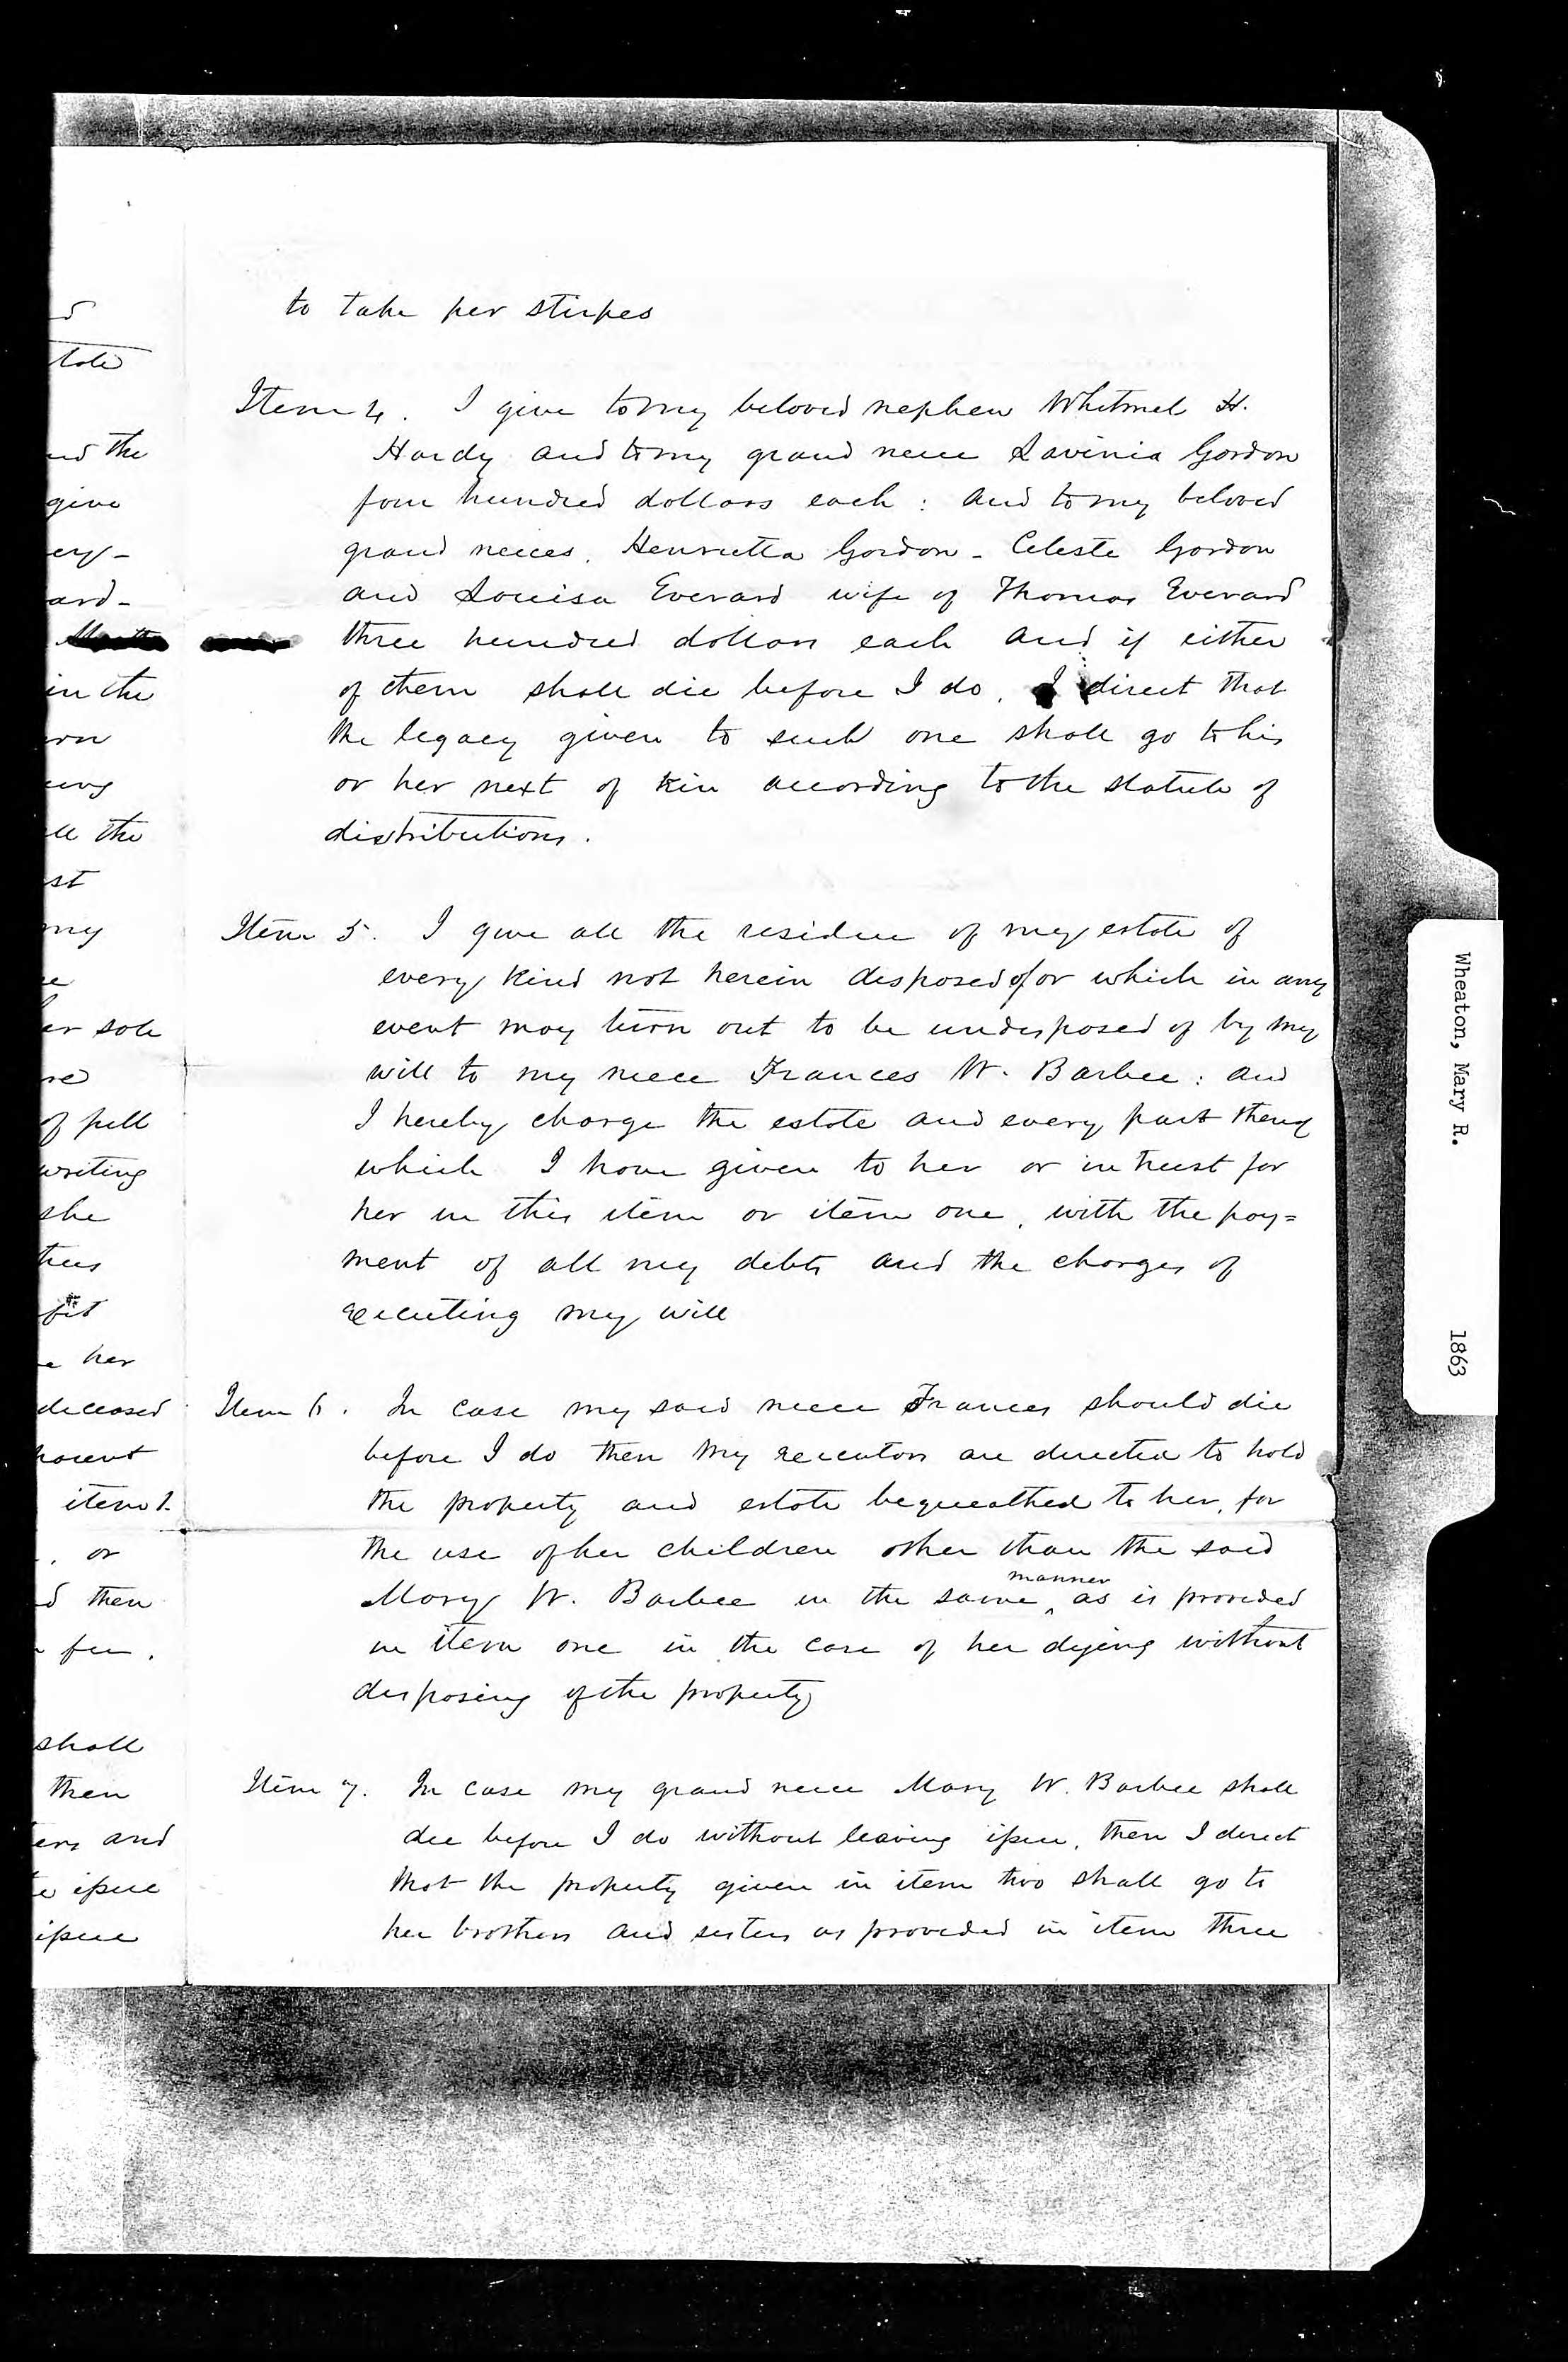 to take per stirpes
Item 4. I give to my beloved nephew Whitmel H.
Hardy and to my grand neice Lavinia Gordon
four hundred dollars each : and to my beloved
grand neices. Henrietta Gordon - Celeste Gordon
and Louisa Everard wife of Thomas Everard
three hundred dollars each and if either
of them shall die before I do. I direct that
the legacy given to such one shall go to his
or her next of kin according to the statute of
distributions.
Item 5. I give all the residue of my estate of
every kind not herein disposed of or which in any
event may turn out to be undisposed of by my
will to my neece Frances W. Barbee : and
I hereby charge the estate and every part thereof
which I have given to her or in trust for
her in this item or item one, with the pay=
ment of all my debts and the charges of
executing my will
Item 6. In case my said neece Frances should die
before I do then my executors are directed to hold
the property and estate bequeathed to her, for
the use of her children other than the said
manner
Mary W. Barbee in the same ^ as is provided
in item one in the case of her dying without
disposing of the property
Item 7. In case my grand neece Mary W. Barbee shall
die before I do without leaving issue, then I direct
that the property given in item two shall go to
her brothers and sisters as provided in item three
nd the
give
ard-
in the
ll the
st
my
er sole
of full
writing
she
e her
deceased
parent
item 1.
, or
d then
fee.
shall
then
ers and
e issue
issue
Wheaton, Mary R. 1863